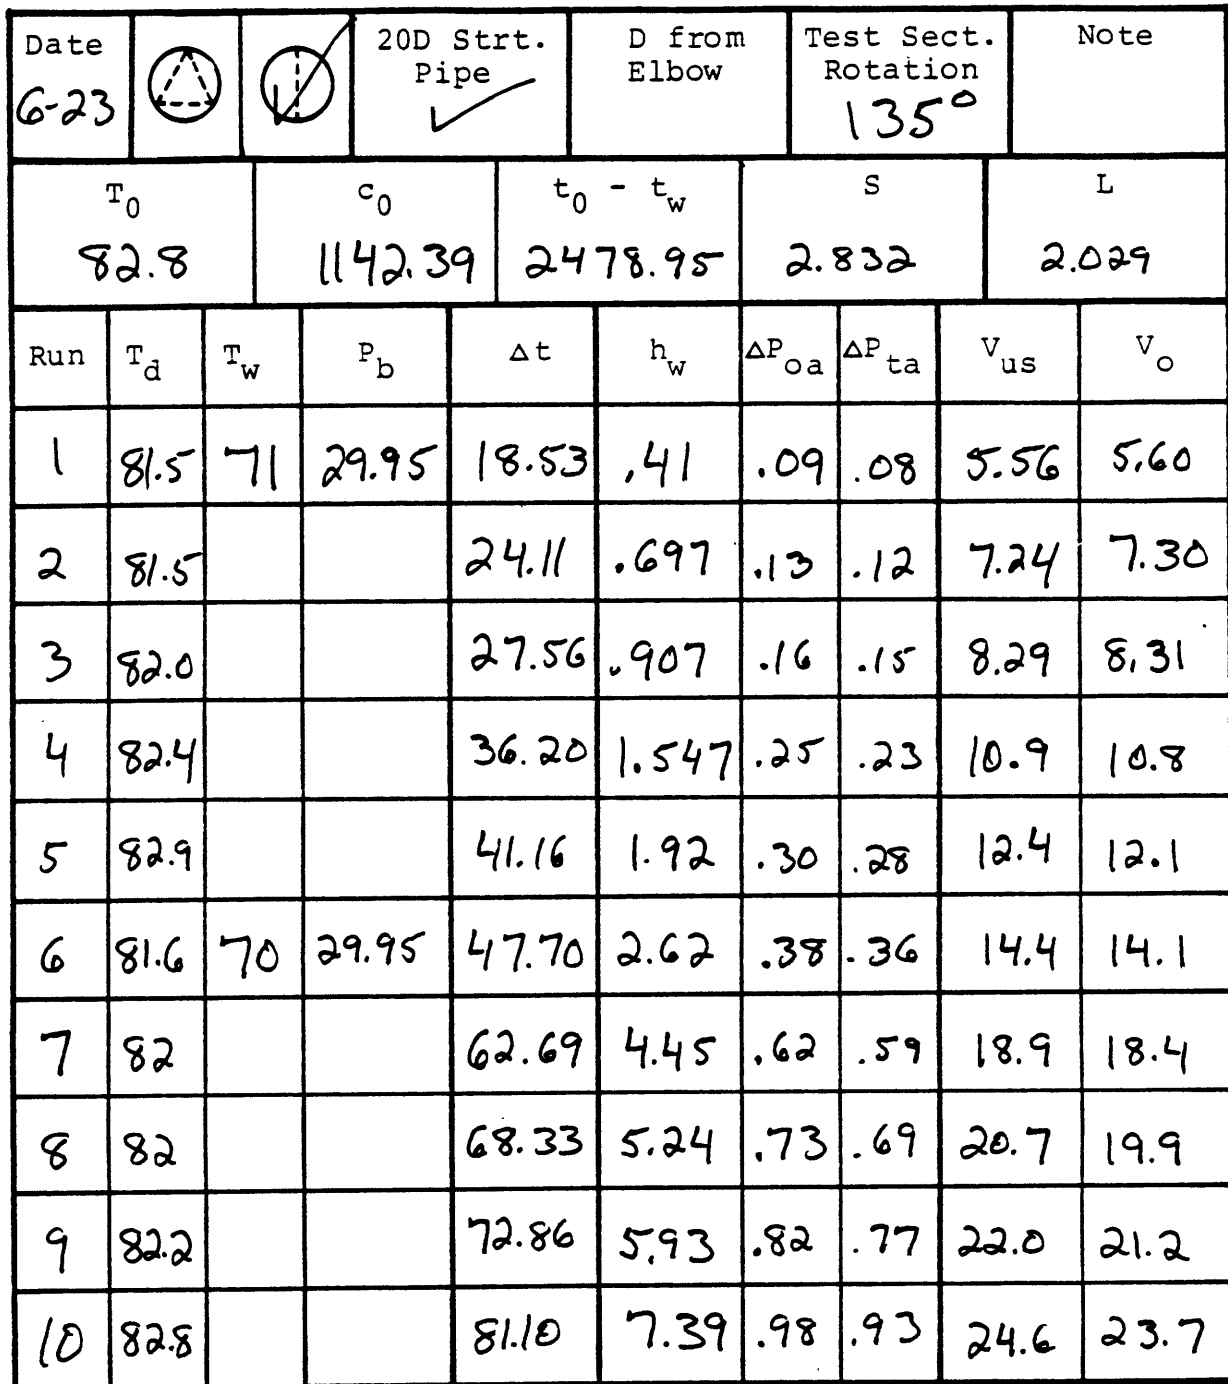 Date 20D Strt. D from Test Sect. Note
Pipe Elbow Rotation
6-23 ✓ ✓ 135°
T0 c0 t0 - tw S L
82.8 1142.39 2478.95 2.832 2.029
Run Td Tw Pb Δt hw ΔPoa ΔPta Vus Vo
1 81.5 71 29.95 18.53 .41 .09 .08 5.56 5.60
2 81.5 24.11 .697 .13 .12 7.24 7.30
3 82.0 27.56 .907 .16 .15 8.29 8.31
4 82.4 36.20 1.547 .25 .23 10.9 10.8
5 82.9 41.16 1.92 .30 .28 12.4 12.1
6 81.6 70 29.95 47.70 2.62 .38 .36 14.4 14.1
7 82 62.69 4.45 .62 .59 18.9 18.4
8 82 68.33 5.24 .73 .69 20.7 19.9
9 82.2 72.86 5.93 .82 .77 22.0 21.2
10 82.8 81.10 7.39 .98 .93 24.6 23.7